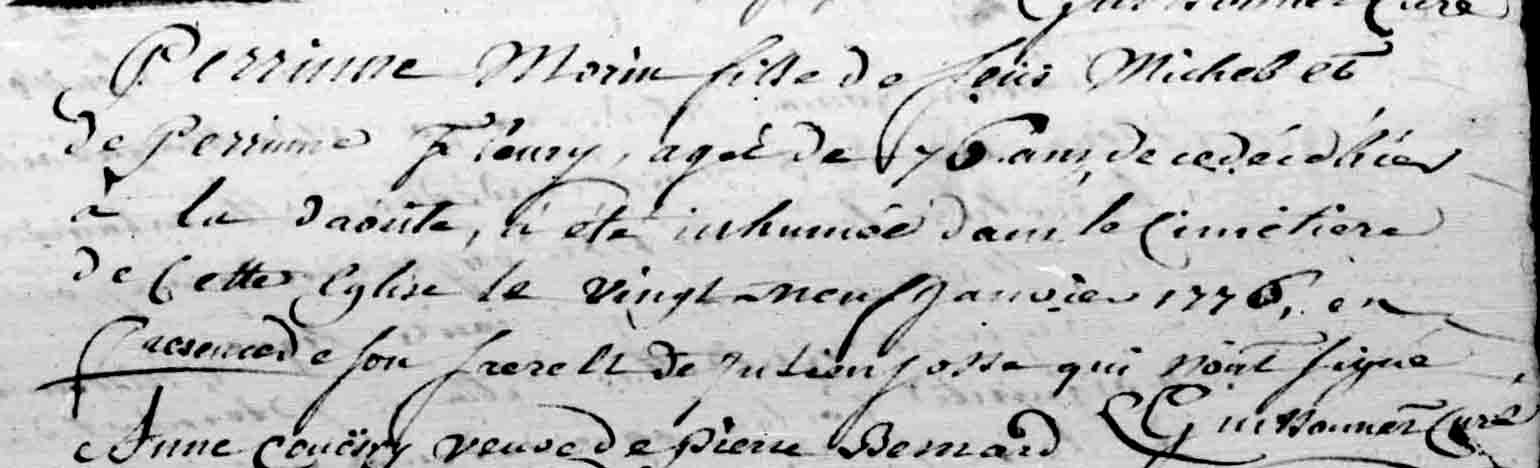 Curé
Perrinne Morin fille de feüs Michel et
de Perrinne Fleury, agée de 76 ans, decedée d'hier
à la Daoüte, a été inhumée dans le Cimetiere
de Cette Eglise le vingt-neuf Janvier 1776, en
presence de son frere et de Julien Josse qui n'ont signé,
Curé
Anne veuve de pierre Bernard